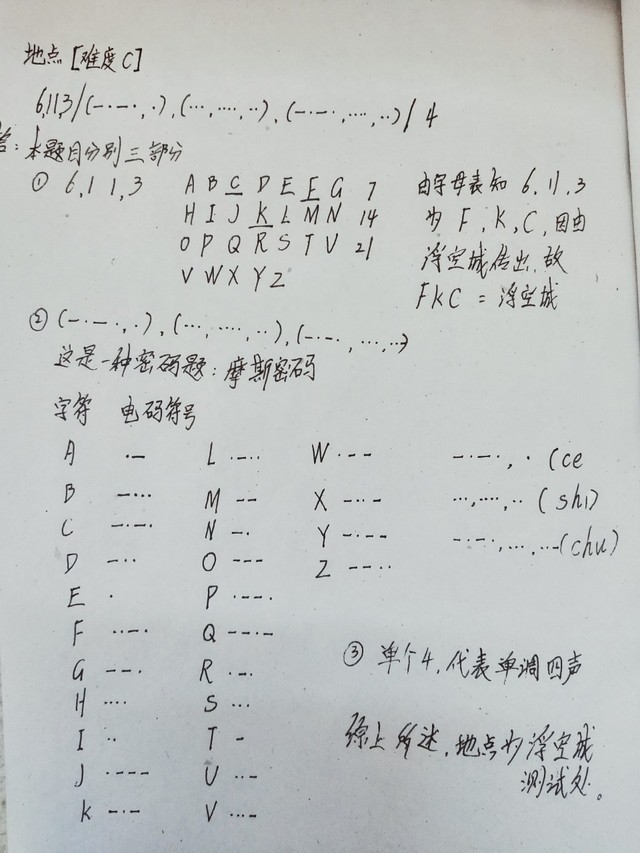 地点[难度C]
6,11,3/(—·—·,·),(···,····,··),(—·—·,····,··)/4
答:本题目分别三部分
① 6,11,3
A B C D E F G 7
H I J K L M N 14
O P Q R S T U 21
V W X Y Z
由字母表知 6, 11, 3
为 F, K, C, 因由
浮空城传出,故
FKC = 浮空城
② (—·—·,·),(···,····,··),(—·—·,····,··)
这是一种密码题:摩斯密码
字符 电码符号
A ·—
B —···
C —·—·
D —··
E ·
F ··—·
G ——·
H ····
I ··
J ·———
K —·—
L ·—··
M ——
N —·
O ———
P ·——·
Q ——·—
R ·—·
S ···
T —
U ··—
V ···—
W ·——
X —··—
Y —·——
Z ——··
—·—·,· (ce
···,····,·· (shi)
—·—·,····,··— (chu)
③ 单个4,代表单调四声
综上所述,地点为浮空城
测试处。